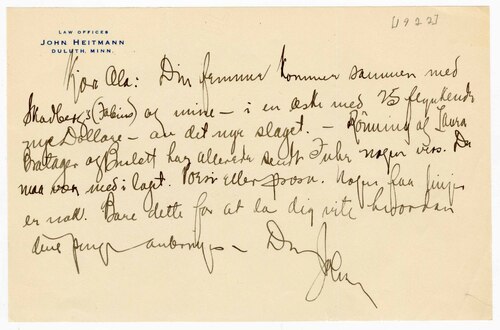 [1922]
LAW OFFICES
JOHN HEITMANN
DULUTH, MINN.
Kjære Ola: Din femmer kommer sammen med
Skadberg's (Fabius) og mine – i en æske med 25 flunkende
nye Dollars – av det nye slaget. – Rønning og Laura
Bratager og Buslett har allerede sendt Fuhr nogen vers. Du
maa være med i laget. Poesi eller prosa. Nogen faa linjer
er nok. Bare dette for at la dig vite hvordan
dine penge anbringes –
Din John